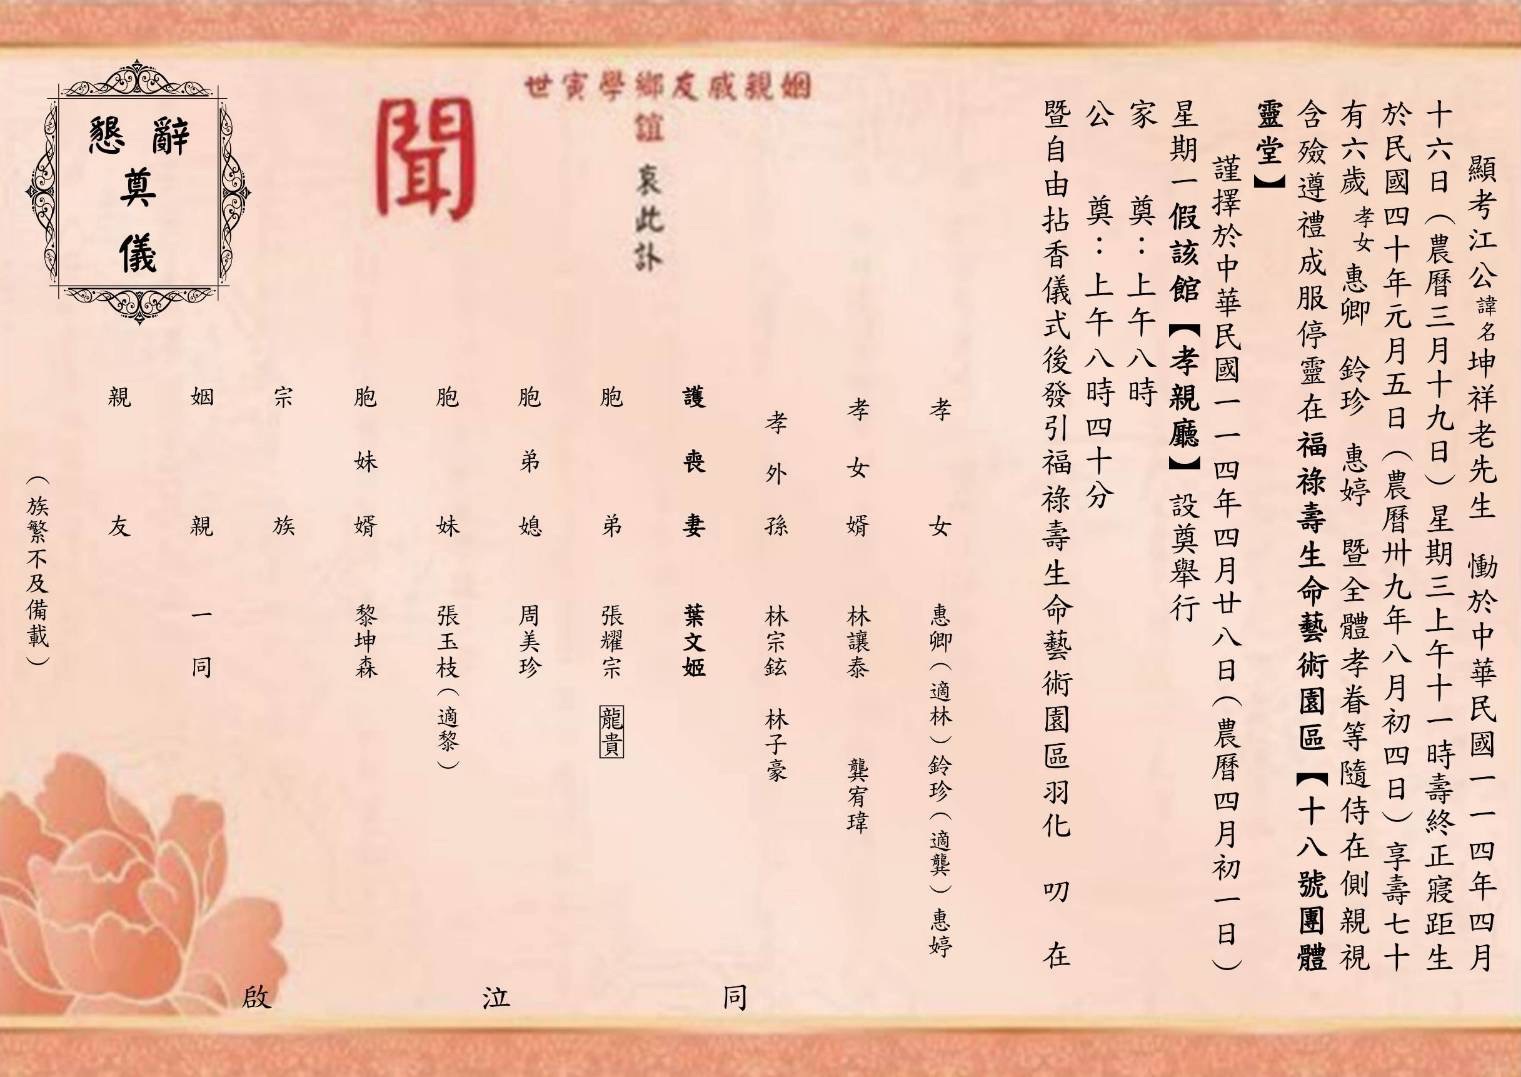 顯考江公諱名坤祥老先生　慟於中華民國一一四年四月
十六日（農曆三月十九日）星期三上午十一時壽終正寢距生
於民國四十年元月五日（農曆卅九年八月初四日）享壽七十
有六歲孝女惠卿　鈴珍　惠婷　暨全體孝眷等隨侍在側親視
含殮遵禮成服停靈在福祿壽生命藝術園區【十八號團體
靈堂】
謹擇於中華民國一一四年四月廿八日（農曆四月初一日）
星期一假該館【孝親廳】設奠舉行
家　奠：上午八時
公　奠：上午八時四十分
暨自由拈香儀式後發引福祿壽生命藝術園區羽化　叨　在
姻親戚友鄉學寅世
誼　哀此訃
聞
孝女　惠卿（適林）鈴珍（適龔）惠婷
孝女婿　林讓泰　龔宥瑋
孝外孫　林宗鉉　林子豪
護喪妻　葉文姬
胞弟　張耀宗　龍貴
胞弟媳　周美珍
胞妹　張玉枝（適黎）
胞妹婿　黎坤森
宗族
姻親　一同
親友
（族繁不及備載）
同　泣　啟
懇辭
奠
儀